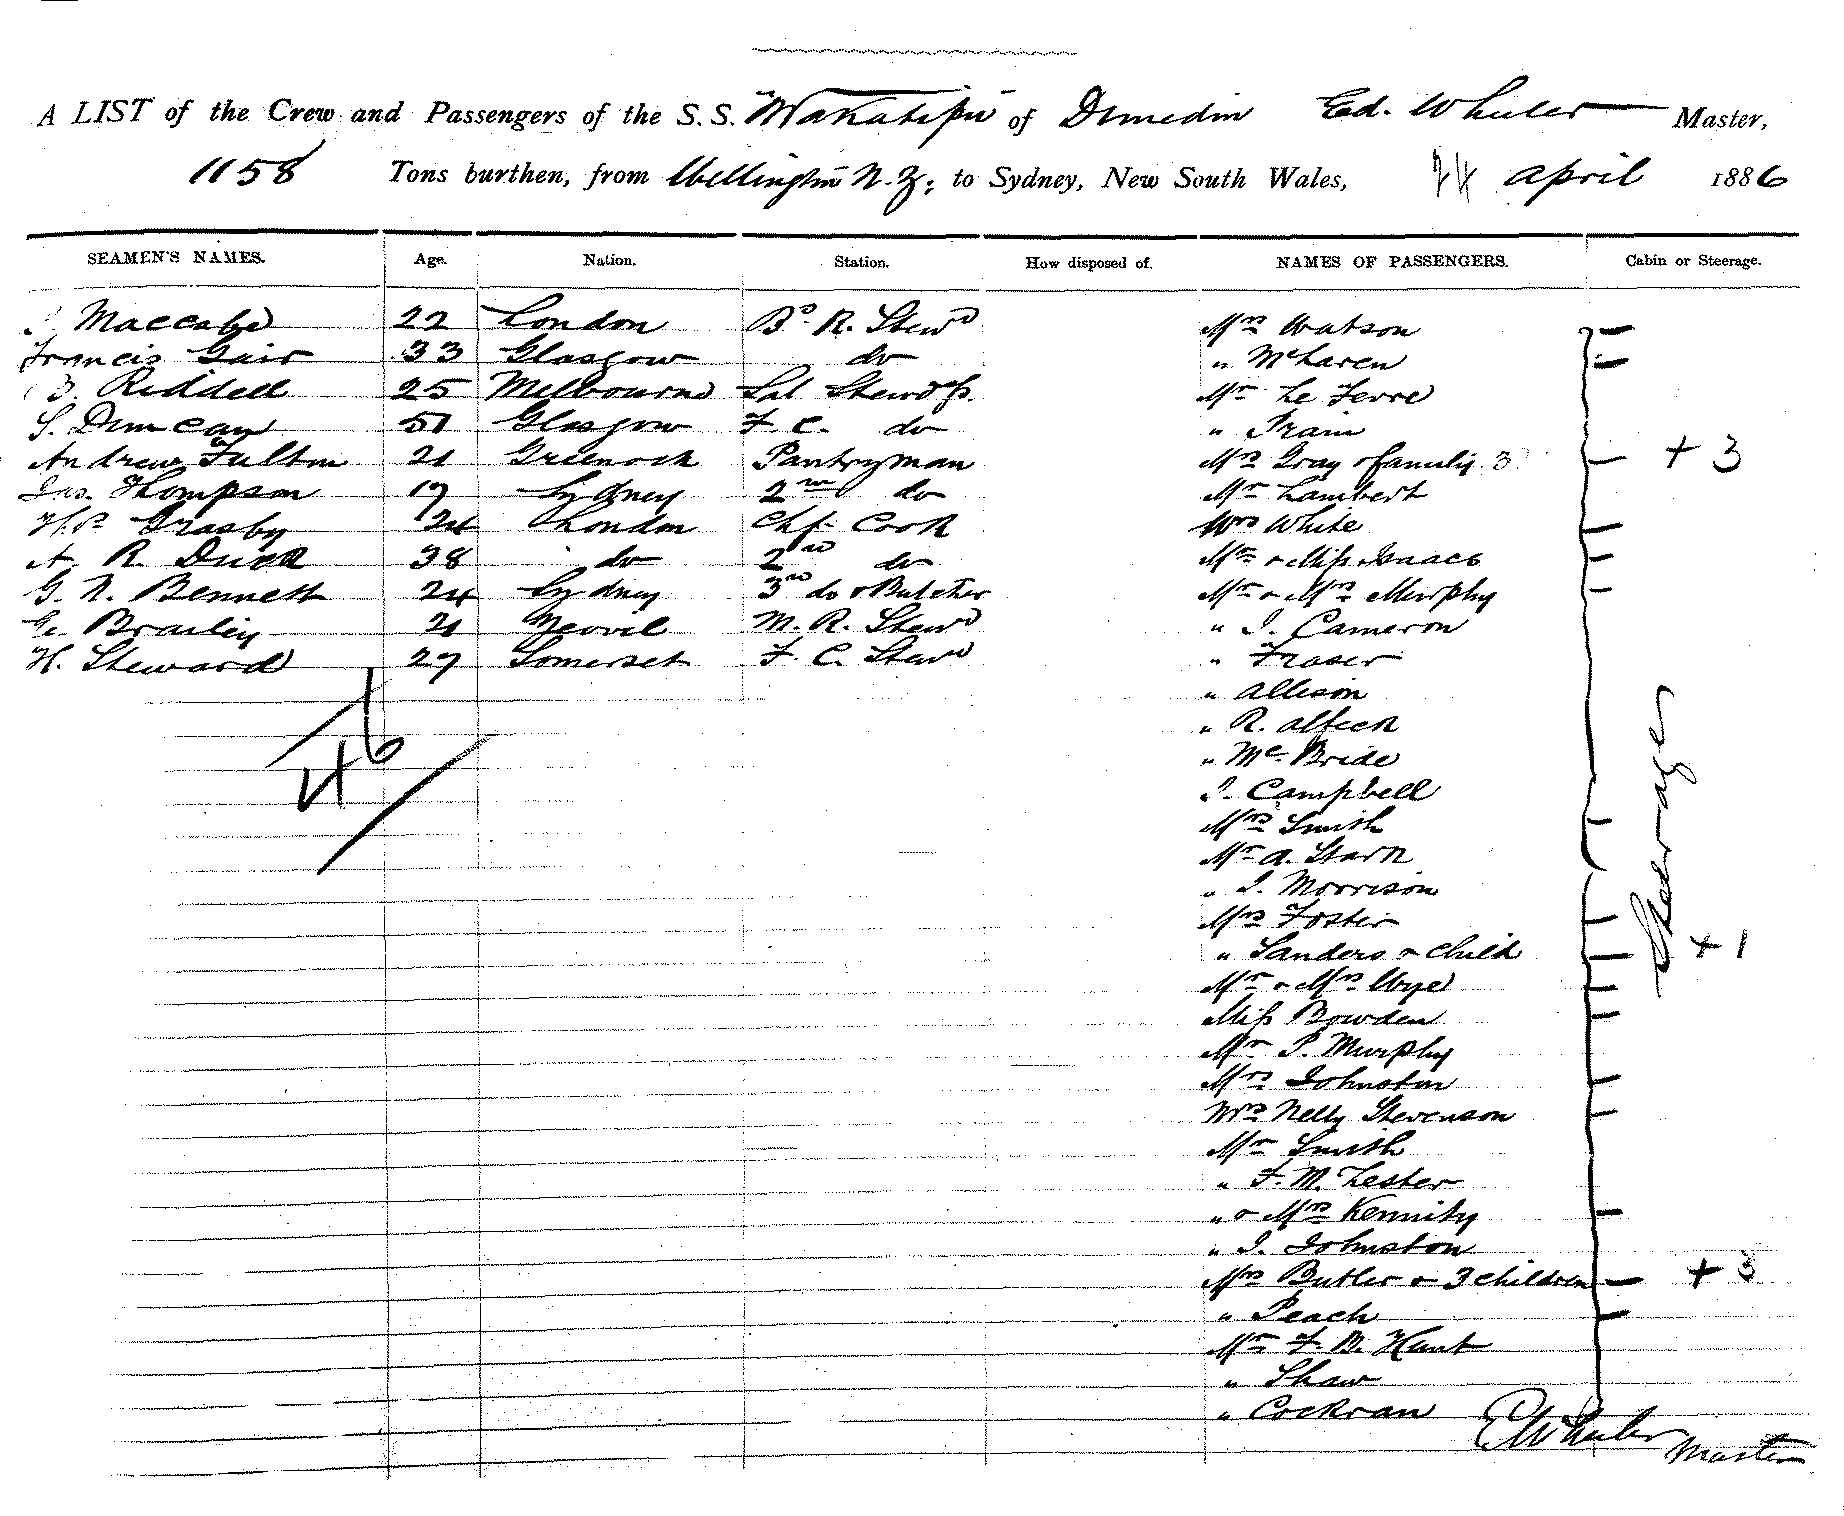 A LIST of the Crew and Passengers of the S.S. "Wakatipu" of Dunedin Ed. Wheeler Master,
1158 Tons burthen, from Wellington N.Z. to Sydney, New South Wales, 24 April 1886
SEAMEN'S NAMES. Age. Nation. Station. How disposed of. NAMES OF PASSENGERS. Cabin or Steerage.
Maccabe 22 London Bd. R. Stewd Mrs Watson
Francis Gair 33 Glasgow do " McLaren
Riddell 25 Melbourne Sal Stewdss. Mr Le Ferre
S. Duncan 51 Glasgow F. C. do " Prain
Andrew Fulton 21 Greenock Pantryman Mrs Gray & family 3 + 3
Jas. Thompson 19 Sydney 2nd do Mr Lambert
Grasby 24 London Chf. Cook Mrs White
A. R. Duck 38 do 2nd do Mr & Miss Isaacs
G. N. Bennett 24 Sydney 3rd do & Butcher Mr & Mrs Murphy
Ge. Brailey 21 Yeovil M. R. Stewd " J. Cameron
H. Steward 27 Somerset F. C. Stewd " Fraser
46
" Allison
" R.
" Mc Bride
J. Campbell
Mrs Smith
Mr A. Stark
" J. Morrison
Mrs Foster
" Sanders & Child + 1
Mr & Mrs Wye
Miss Bowden
Mr P. Murphy
Mrs Johnston
Mrs Nelly Stevenson
Mr Smith
" F. M. Lester
" & Mrs Kennity
" J. Johnston
Mrs Butler & 3 children + 3
" Peach
Mr F. B. Hunt
" Shaw
" Cockran
Steerage
E Wheeler Master